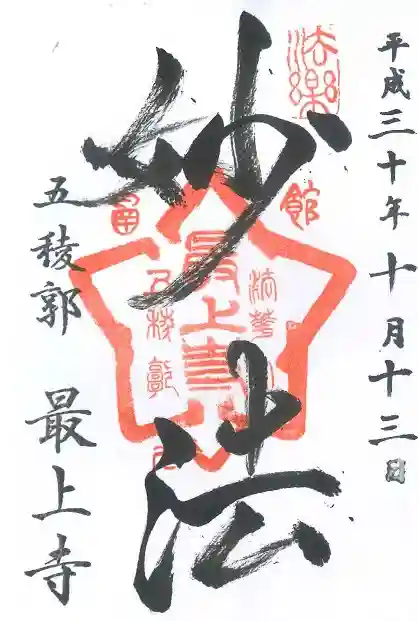 平成三十年十月十三日
法樂
妙法
館
最上寺
五稜郭
五稜郭
最上寺